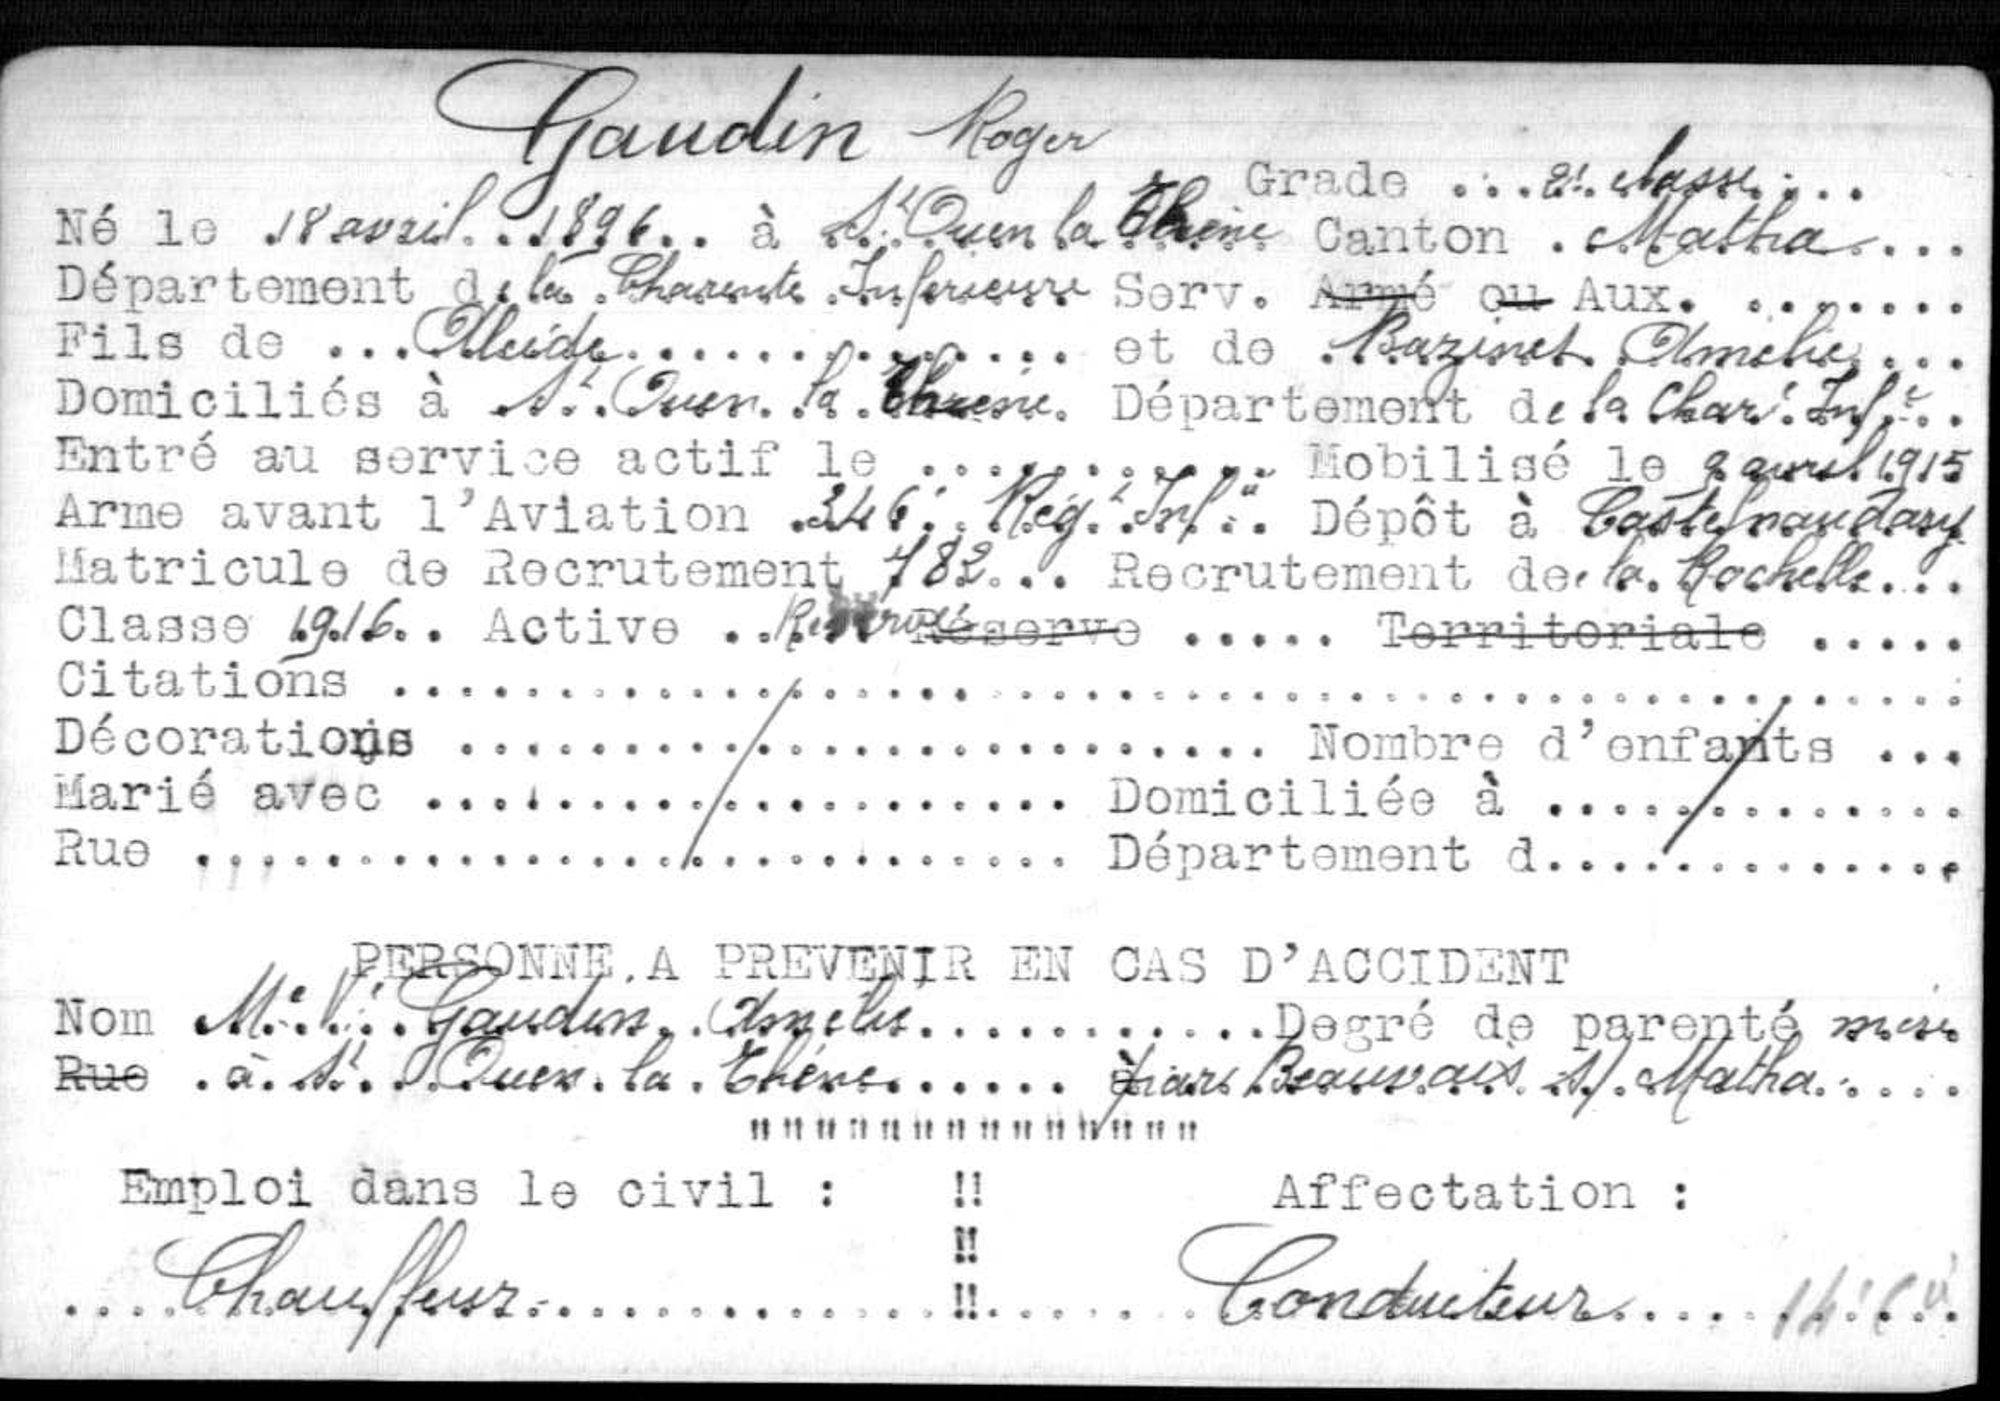 Gaudin Roger
Grade ... 2e. classe....
Né le 18 avril 1896.. à St Ouen la Thène Canton . Matha....
Département de la Charente Inférieure Serv. Armé ou Aux. .......
Fils de ... Alcide.............. et de . Bazinet. Amélie....
Domiciliés à St. Ouen. la Thène. Département de la Char. Infre..
Entré au service actif le ........... Mobilisé le 9 avril 1915
Arme avant l'Aviation .346e. Régt. Infie. Dépôt à Castelnaudary
Matricule de Recrutement 782... Recrutement de la Rochelle...
Classe 1916.. Active .. Réserve Réserve ..... Territoriale .....
Citations ................................................
Décorations ......................... Nombre d'enfants ...
Marié avec .................... Domiciliée à .............
Rue ........................... Département d..............
PERSONNE A PREVENIR EN CAS D'ACCIDENT
Nom Me. Ve. Gaudin. Amélie...........Degré de parenté mère
Rue . à. St. Ouen. la. Thène...... à par Beauvais s/. Matha.....
"""""""""""""""
Emploi dans le civil : !! Affectation :
!!
.... Chauffeur..............!!....... Conducteur..........